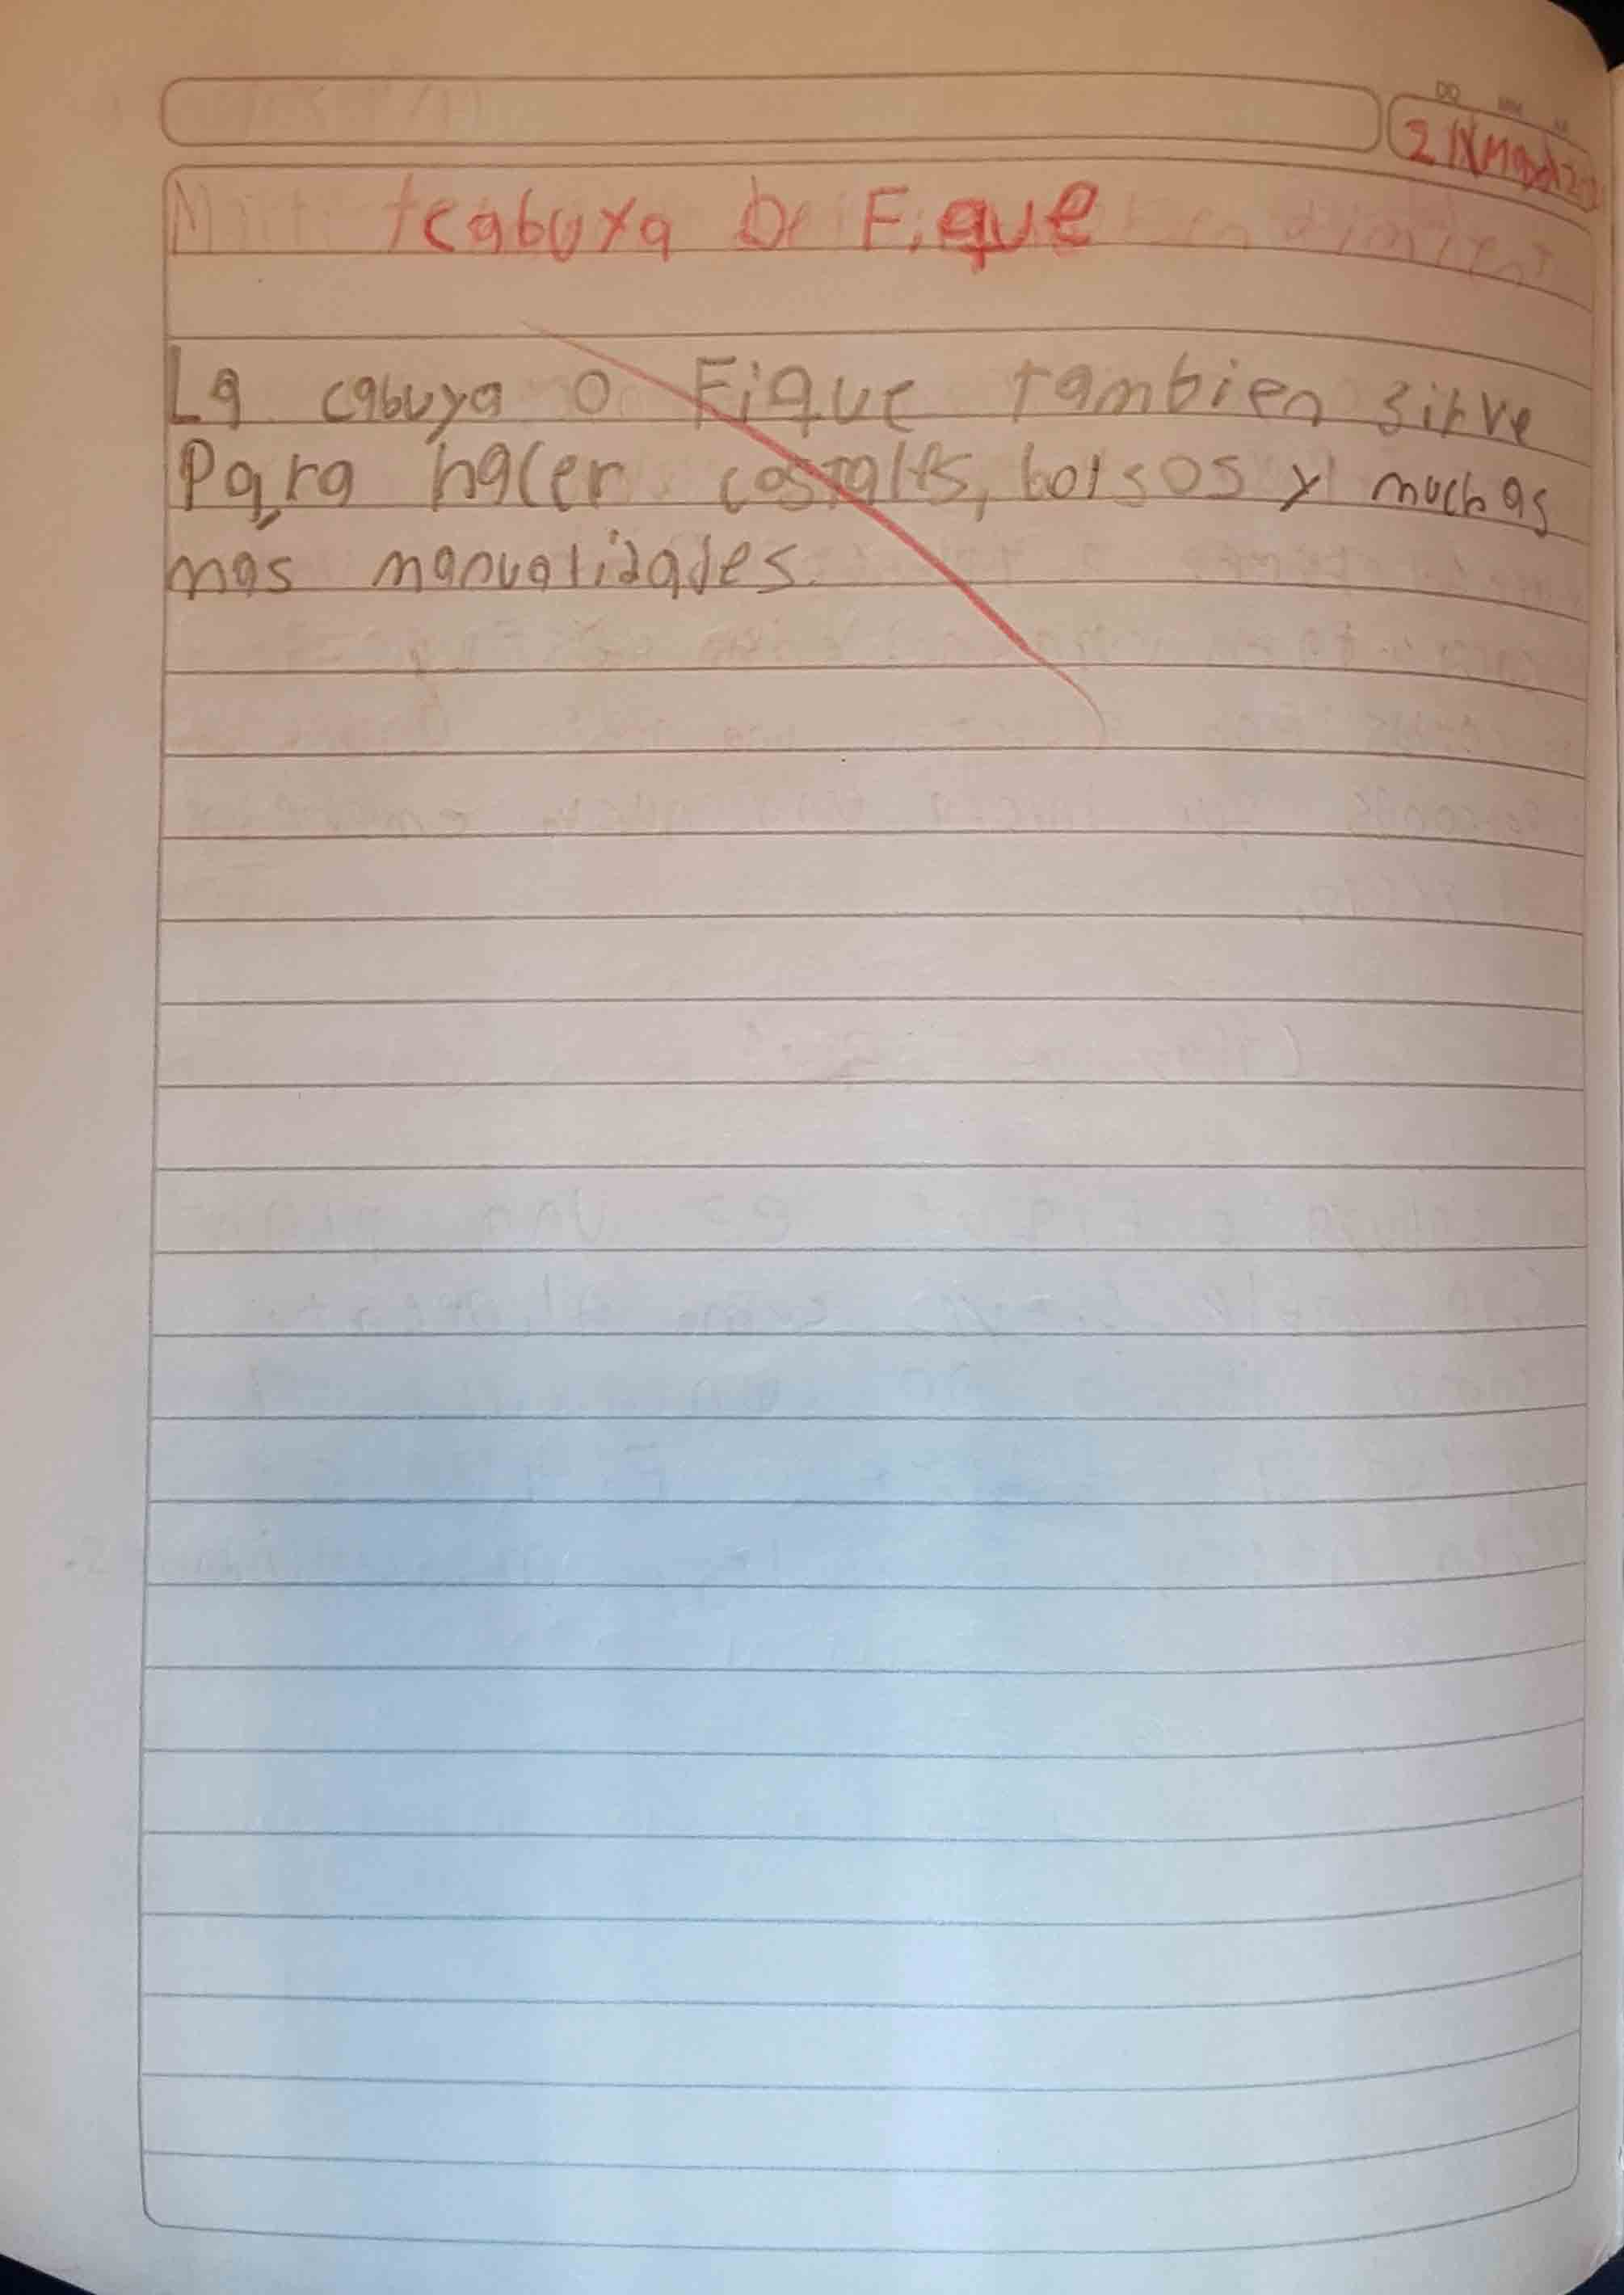 cabuya De Fique
La cabuya o Fique tambien sirve
Para hacer costales, bolsos y muchas
mas manualidades.